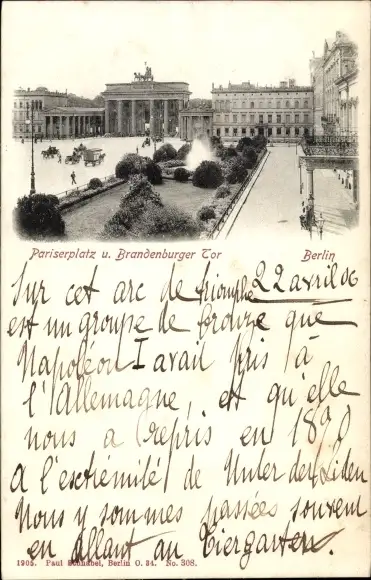 Pariserplatz u. Brandenburger Tor Berlin
22 avril 06
Sur cet arc de triomphe
est un groupe de bronze que
Napoléon I avait pris à
l'Allemagne, et qu'elle
nous a repris en 1870
A l'extrémité de Unter den Linden
Nous y sommes passées souvent
en allant au Tiergarten.
1905. Paul Schnabel, Berlin O. 34. No. 308.